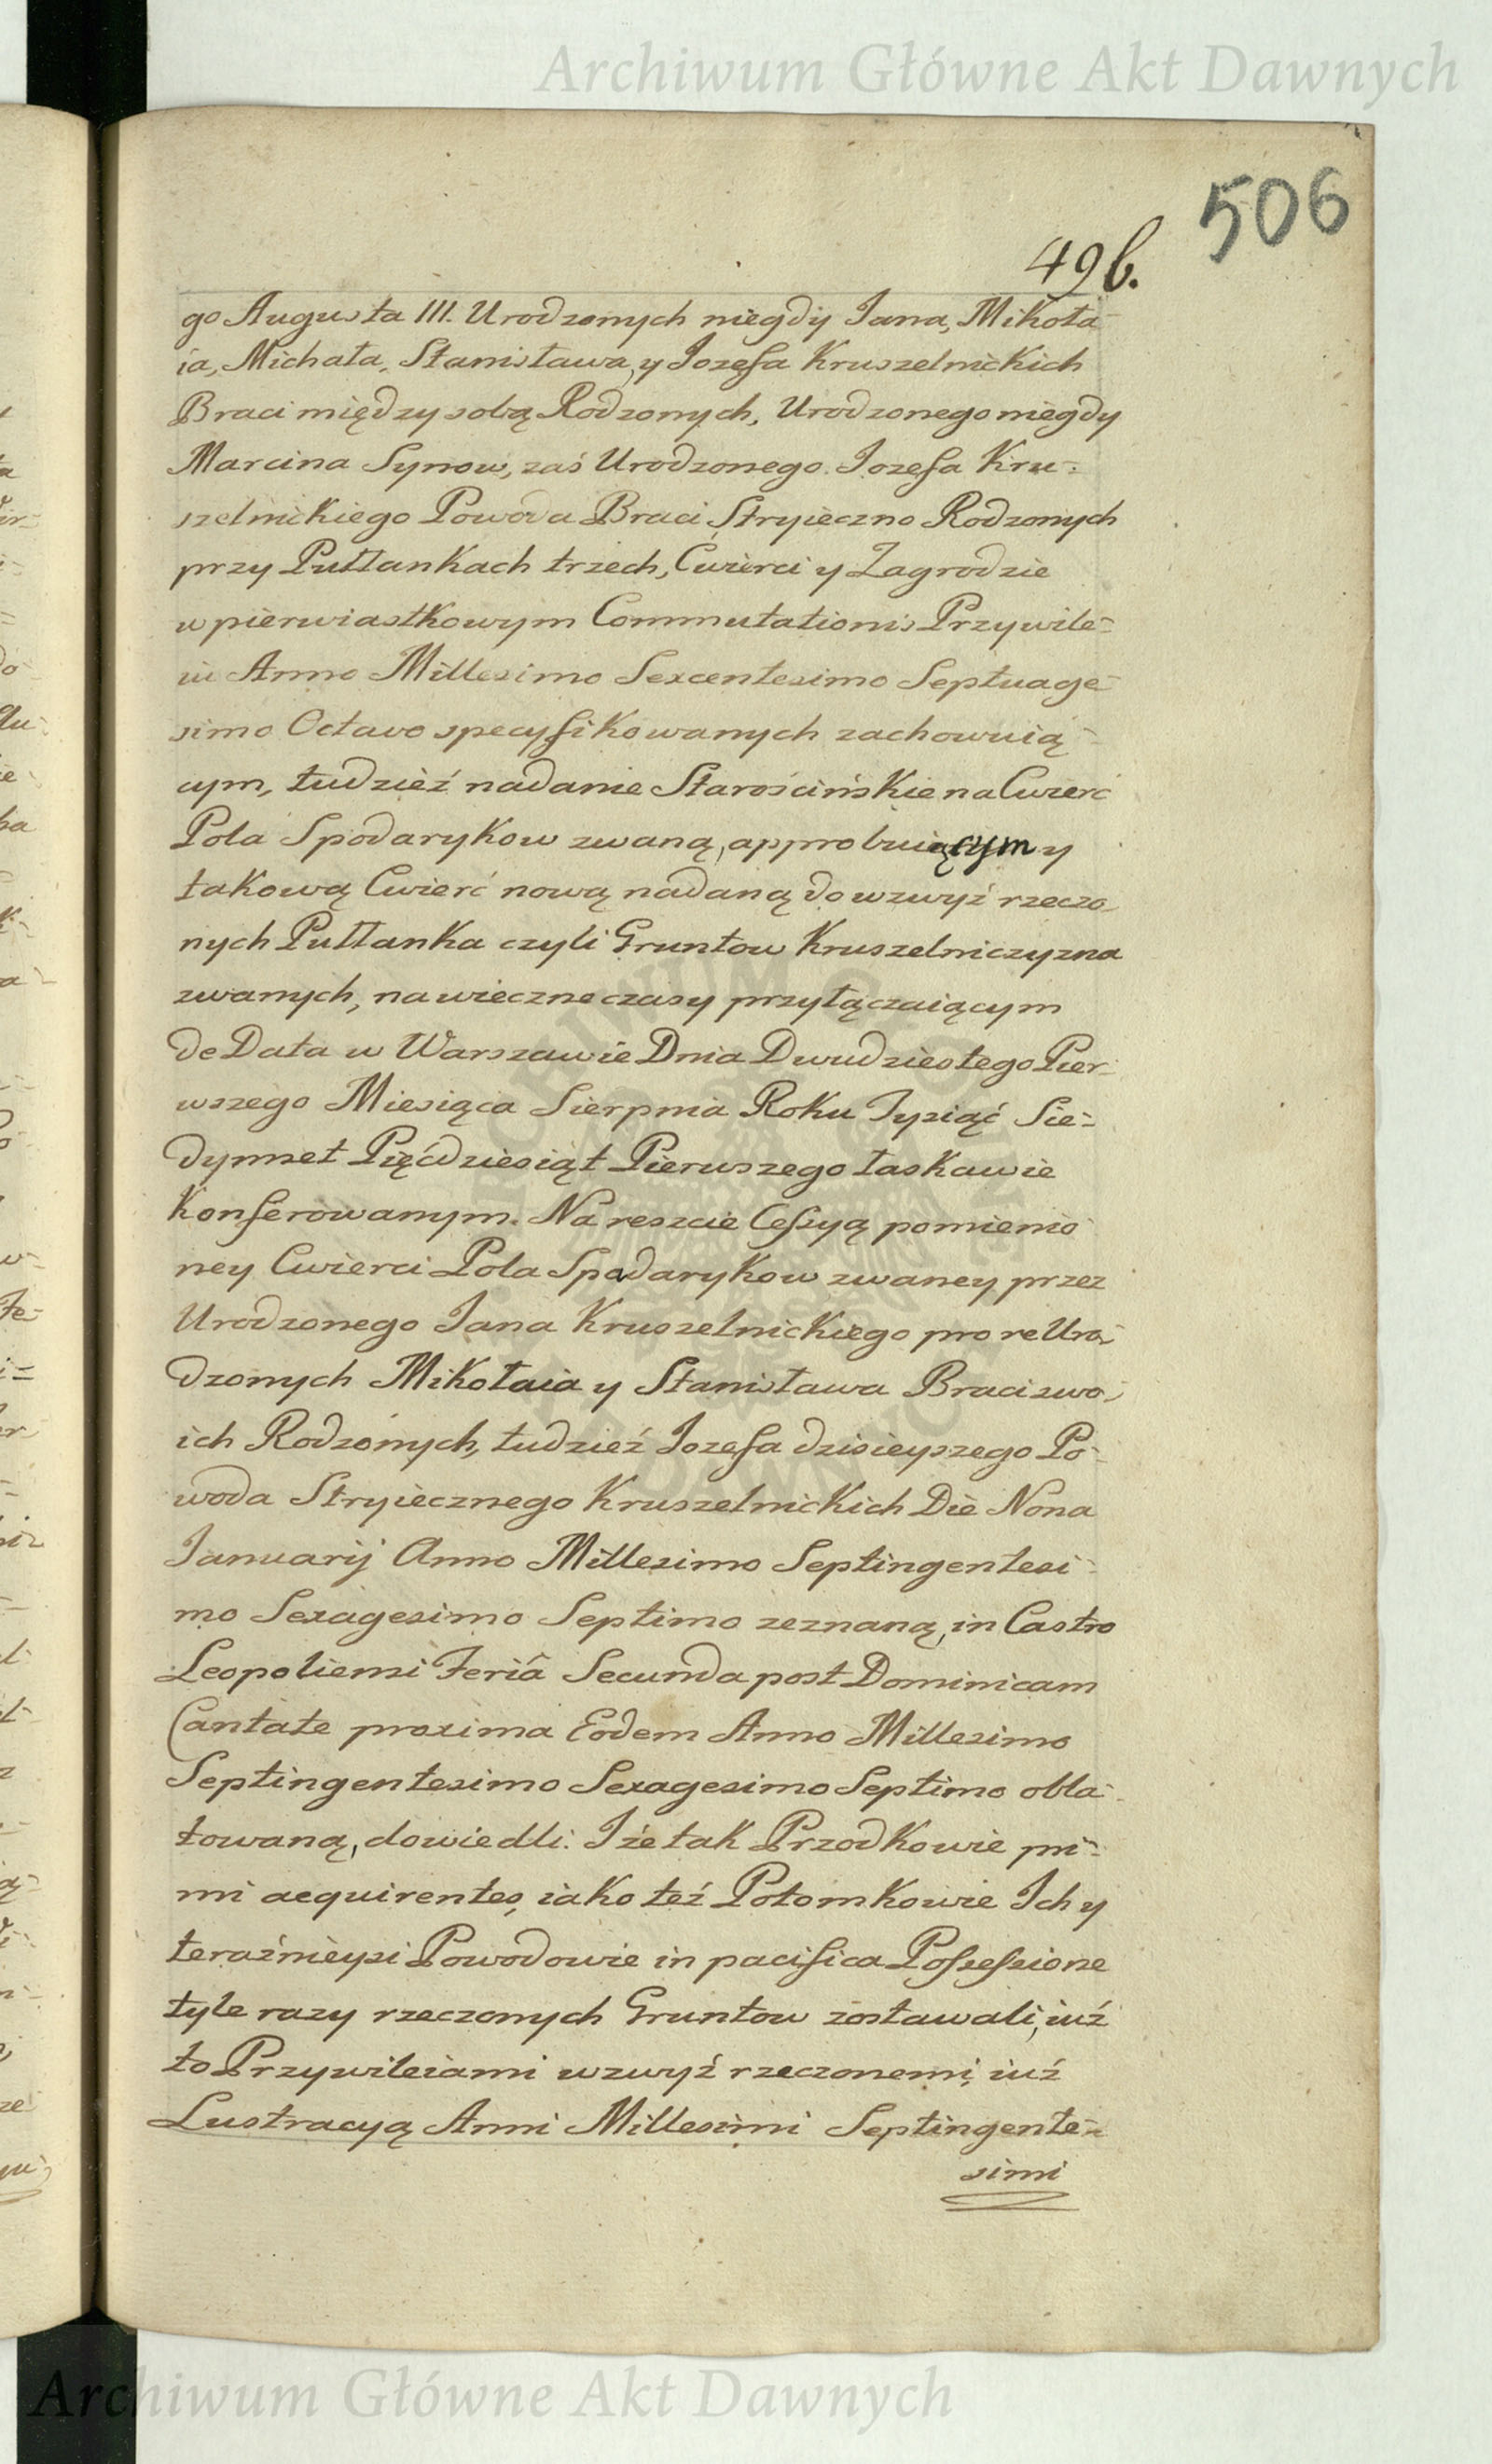 Archiwum Główne Akt Dawnych
506
496.
go Augusta III. Urodzonych niegdy Jana, Mikoła-
ia, Michała, Stanisława, y Jozefa Kruszelnickich
Braci między sobą Rodzonych, Urodzonego niegdy
Marcina Synow, zaś Urodzonego Jozefa Kru-
szelnickiego Powoda Braci Stryieczno Rodzonych
przy Pułłankach trzech, Cwierci y Zagrodzie
w pierwiastkowym Commutationis Przywile-
iu Anno Millesimo Sexcentesimo Septuage-
simo Octavo specyfikowanych zachowuią-
cym, tudzież nadanie Starościńskie na Cwierć
Pola Spodarykow zwaną, approbuiącym y
takową Cwierć nową nadaną do wzwyż rzeczo-
nych Pułłanka czyli Gruntow Kruszelniczyzna
zwanych, na wieczne czasy przyłączaiącym
de Data w Warszawie Dnia Dwudziestego Pier-
wszego Miesiąca Sierpnia Roku Tysiąć Sie-
dymset Pięćdziesiąt Pierwszego łaskawie
Konferowanym. Na reszcie Cessyą pomienio-
ney Cwierci Pola Spodarykow zwaney przez
Urodzonego Jana Kruszelnickiego pro re Uro-
dzonych Mikołaia y Stanisława Braci swo-
ich Rodzonych, tudzież Jozefa dzisieyszego Po-
woda Stryiecznego Kruszelnickich Die Nona
Januarij Anno Millesimo Septingentesi-
mo Sexagesimo Septimo zeznaną, in Castro
Leopoliensi Feriâ Secunda post Dominicam
Cantate proxima Eodem Anno Millesimo
Septingentesimo Sexagesimo Septimo obla-
towaną, dowiedli. Iże tak Przodkowie pri-
mi acquirentes, iako też Potomkowie Ich y
teraźnieysi Powodowie in pacifica Possessione
tyle razy rzeczonych Gruntow zostawali, iuż
to Przywileiami wzwyż rzeczonemi, iuż
Lustracyą Anni Millesimi Septingente-
simi
Archiwum Główne Akt Dawnych